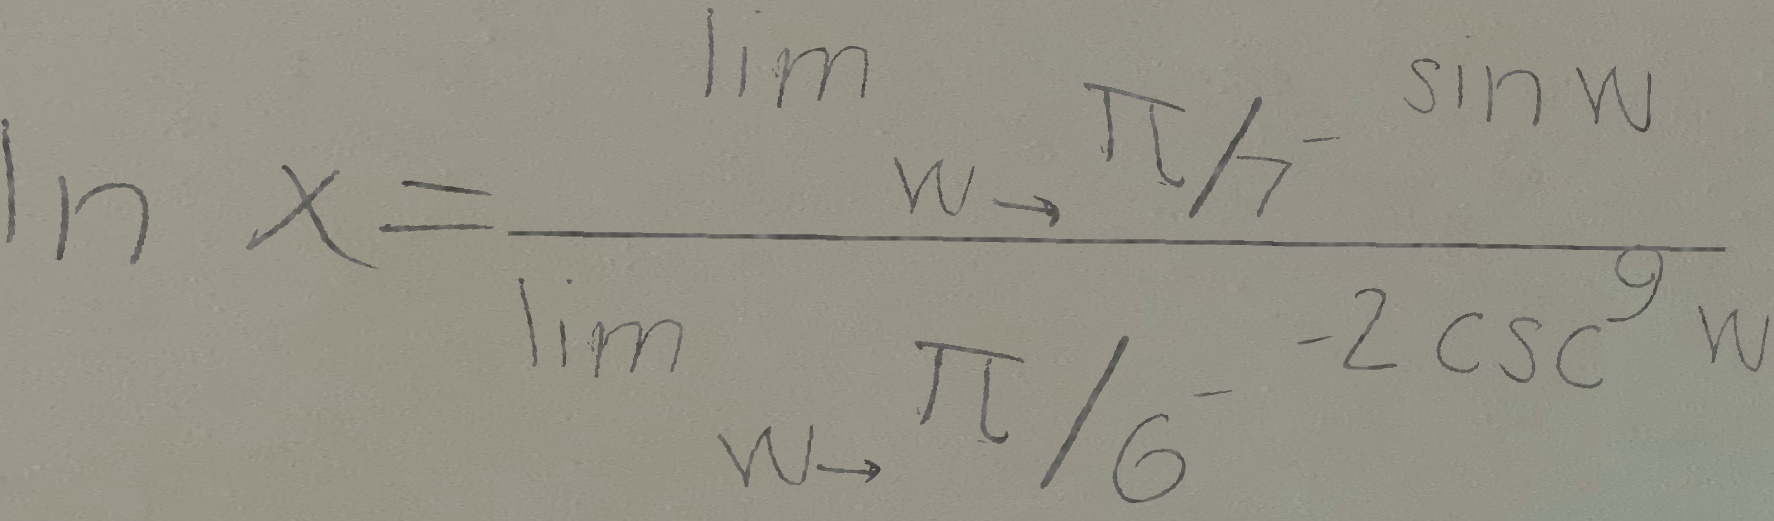 ln x = \frac{\lim_{w \to \pi/7^-} \sin w}{\lim_{w \to \pi/6^-} -2 \csc^9 w}